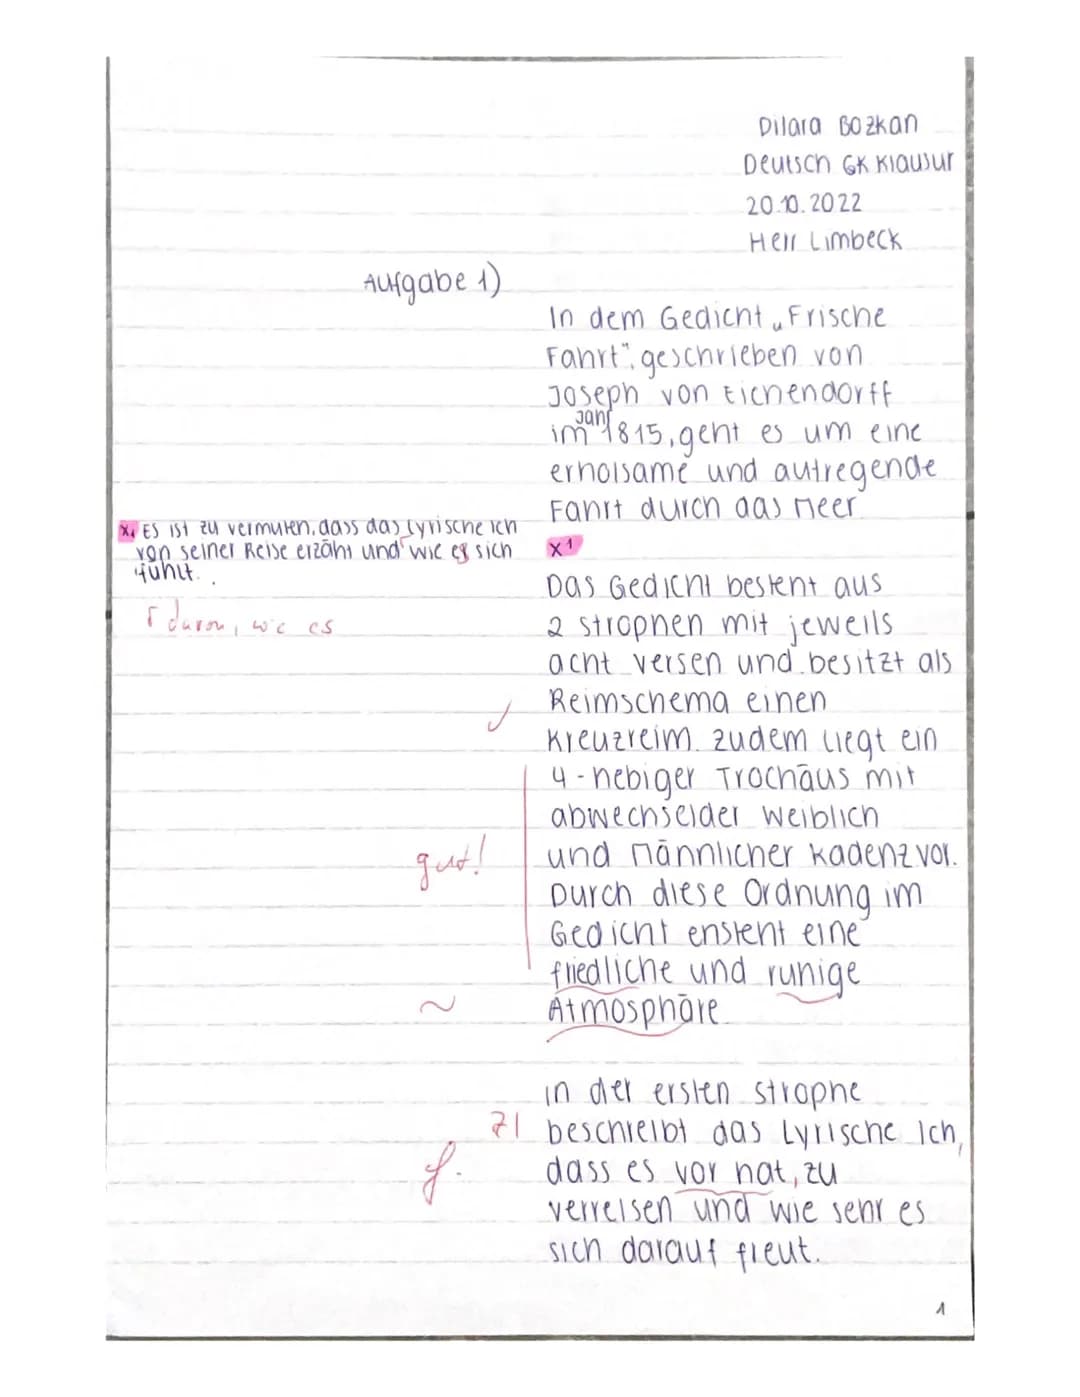 Dilara Bozkan
Deutsch GK Klausur
20.10.2022
Herr Limbeck
Aufgabe 1)
In dem Gedicht „Frische
Fahrt", geschrieben von
Joseph von Eichendorff
im Jahr 1815, geht es um eine
erholsame und aufregende
Fahrt durch das Meer.
x1
x1 Es ist zu vermuten, dass das Lyrische Ich
von seiner Reise erzählt und wie es sich
fühlt.
Γ davon, wie es
Das Gedicht besteht aus
2 Strophen mit jeweils
acht Versen und besitzt als
Reimschema einen
✓
Kreuzreim. Zudem liegt ein
4-hebiger Trochäus mit
abwechselder weiblich
gut!
und männlicher Kadenz vor.
Durch diese Ordnung im
Gedicht ensteht eine
friedliche und ruhige
~
Atmosphäre
In der ersten Strophe
Z|
beschreibt das Lyrische Ich,
f.
dass es vor hat, zu
verreisen und wie sehr es
sich darauf freut.
1